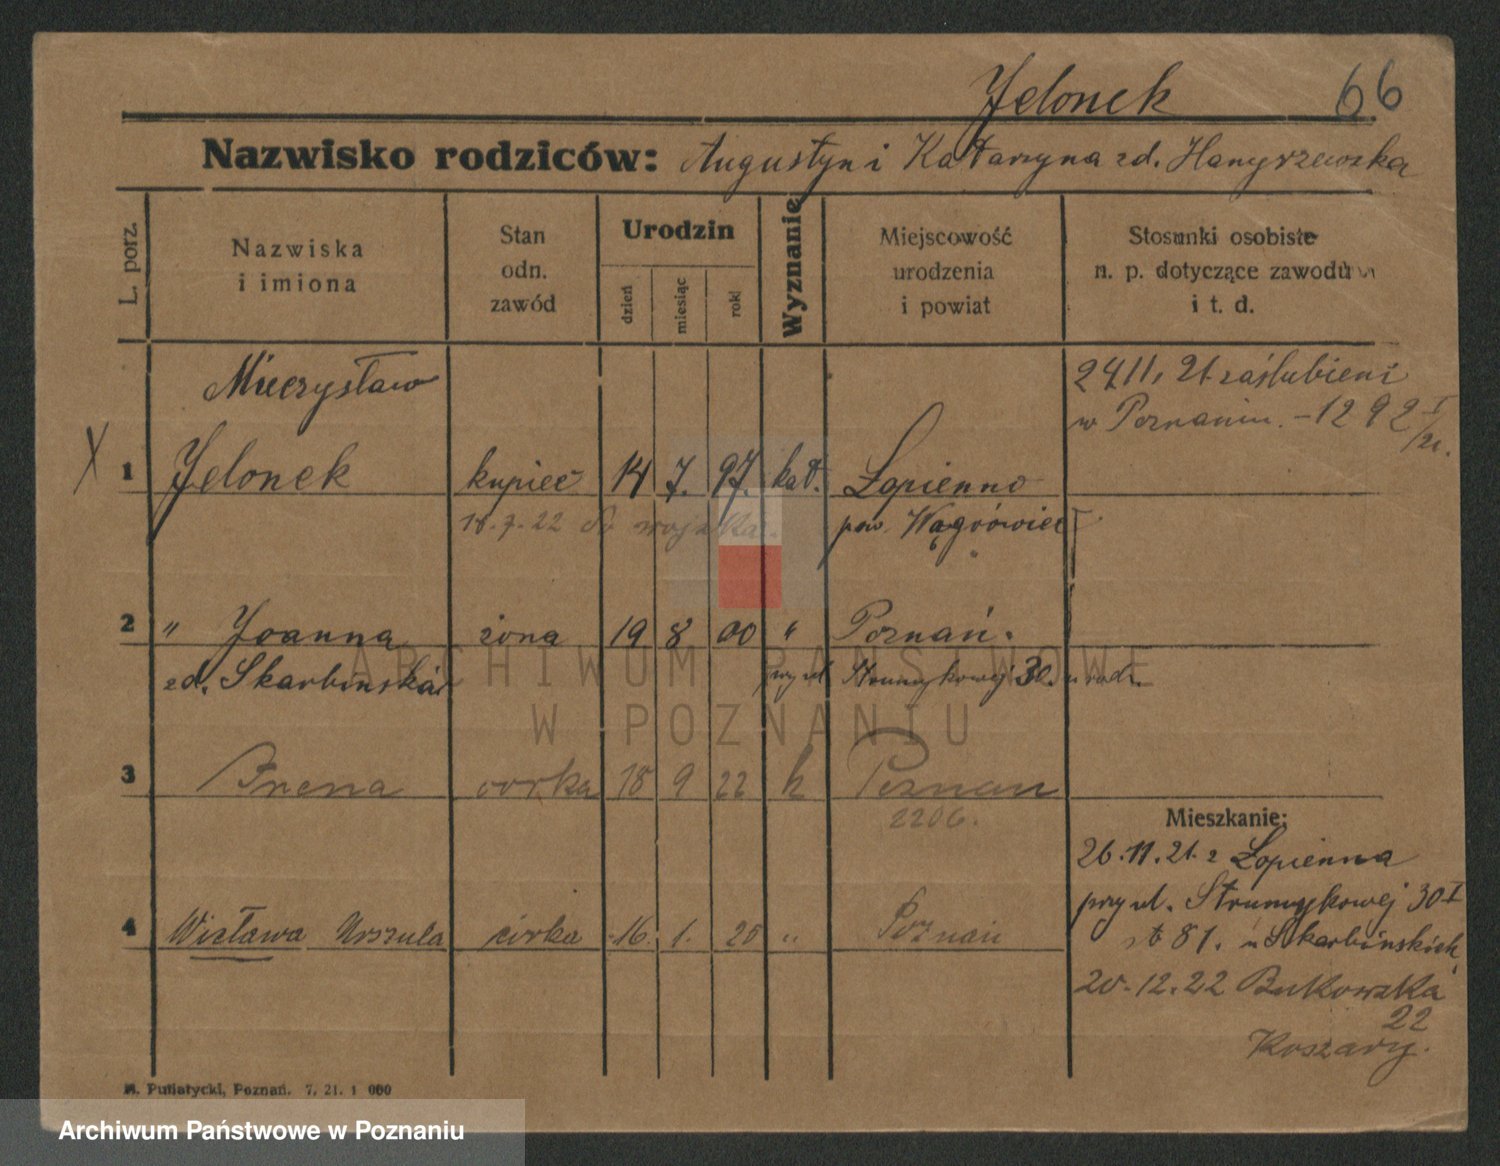 Jelonek 66
Nazwisko rodziców: Augustyn i Katarzyna zd. Hanyszewska
L. porz.
Nazwiska
i imiona
Stan
odn.
zawód
Urodzin
dzień
miesiąc
rok
Wyznanie
Miejscowość
urodzenia
i powiat
Stosunki osobiste
n. p. dotyczące zawodu
i t. d.
Mieczysław
X 1 Jelonek kupiec 14 7. 97. kat. Łopienno
18.7.22 do wojska. pow. Wągrówiec
24 11. 21 zaślubieni
w Poznaniu. - 1292 I/21.
2 " Joanna żona 19 8 00 " Poznań.
zd. Skarbinska przy ul Strumykowej 30. u rodz.
3 Irena córka 18 9 22 k Poznan
2206.
4 Wisława Urszula córka 16. 1. 25 " Poznań
Mieszkanie:
26.11.21 z Łopienna
przy ul. Strumykowej 30 I
st 81. u Skarbińskich
20.12.22 Bukowska
22
Koszary.
M. Putiatycki, Poznań. 7. 21. 1 000
ARCHIWUM PAŃSTWOWE
W POZNANIU
Archiwum Państwowe w Poznaniu